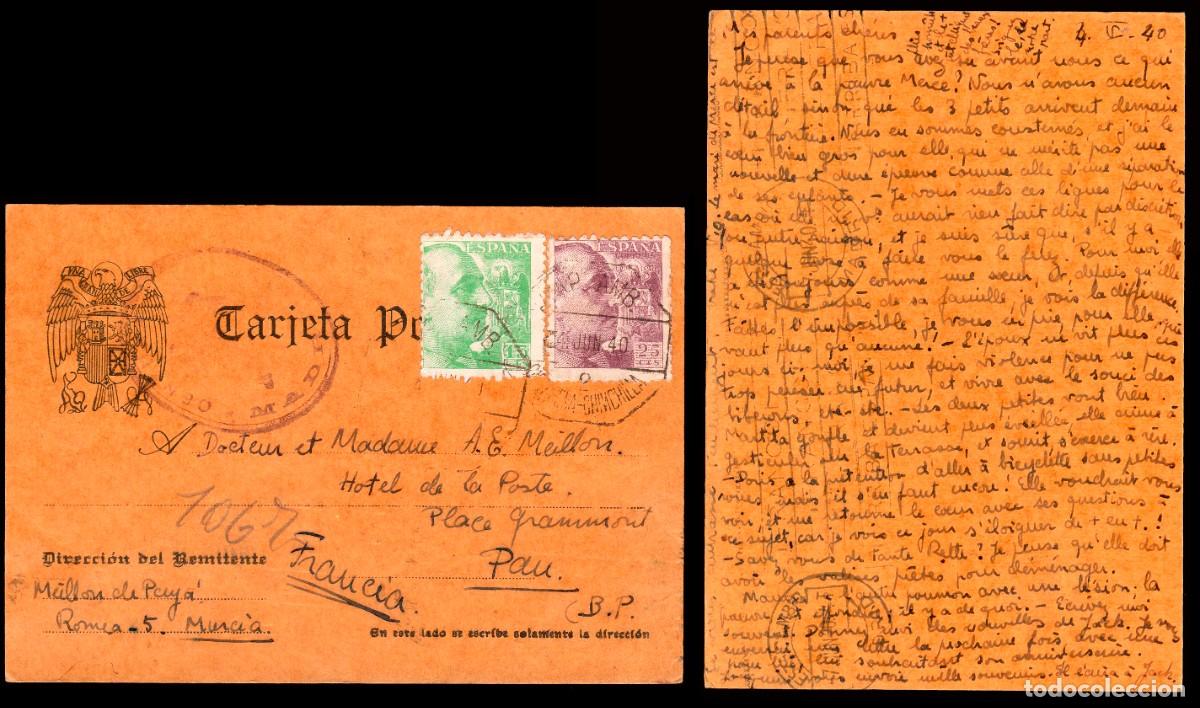 UNA GRANDE LIBRE
Tarjeta Po
ESPAÑA
ESPAÑA
CORREOS
15
25
CTS
AMB.
JUN 40
CHINCHILLA
MADRID
A Docteur et Madame A.E. Meillon.
Hotel de la Poste.
Place Grammont
Pau.
(B.P.
Francia
1067
Dirección del Remitente
Meillon de Payá
Romea-5. Murcia.
En este lado se escribe solamente la dirección
4. VI. 40
Mes parents chéris
Je pense que vous avez su avant nous ce qui
arrive à la pauvre Merce? Nous n'avons aucun
détail - sinon que les 3 petits arrivent demain
à la frontière. Nous en sommes consternés, et j'ai le
cœur bien gros pour elle, qui ne mérite pas une
nouvelle et dure épreuve comme celle d'une séparation
de ses enfants. - Je vous mets ces lignes pour le
cas où elle ne vs. aurait rien fait dire par discrétion
ou autre raison, et je suis sûre que, s'il y a
quelque chose à faire vous le ferez. Pour moi elle
a été toujours comme une sœur, et depuis qu'elle
est auprès de sa famille, je vois la différence,
Faites l'impossible, je vous en prie pour elle
vaut plus qu'aucune! - L'époux ne vit plus ces
jours ci. moi, je me fais violence pour ne pas
trop penser au futur, et vivre avec le souci des
biberons, etc - etc. - Les deux petites vont bien.
Martita gonfle et devient plus éveillée, elle aime à
gesticuler sur la terrasse, et sourit, s'exerce à rire.
- Doris a la prétention d'aller à bicyclette sans petites
roues mais il s'en faut encore! Elle voudrait vous
voir, et me retourne le cœur avec ses questions -
ce sujet, car je vois ce jour s'éloigner de + en +.!
- Savez vous de tante Rette? Je pense qu'elle doit
avoir les valises prêtes pour déménager.
poumon avec une lésion, la
pauvre est effondrée, il y a de quoi. - Ecrivez moi
souvent. Donnez moi des nouvelles de Jack. Je vs
enverrai une lettre la prochaine fois, avec une
pour lui, lui souhaitant son anniversaire.
envoie mille souvenirs. Il écrira à Jack.
todocoleccion.net